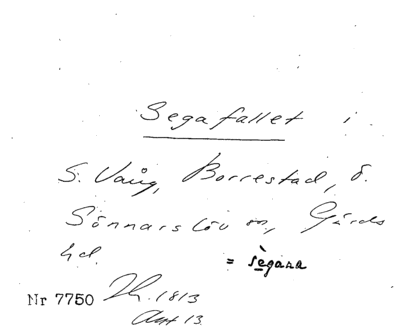 Segafallet i
S. Vång, Borrestad, Ö.
Sönnarslöv sn, Gärds
hd. = sègara
Nr 7750 Th. 1813
Akt 13.